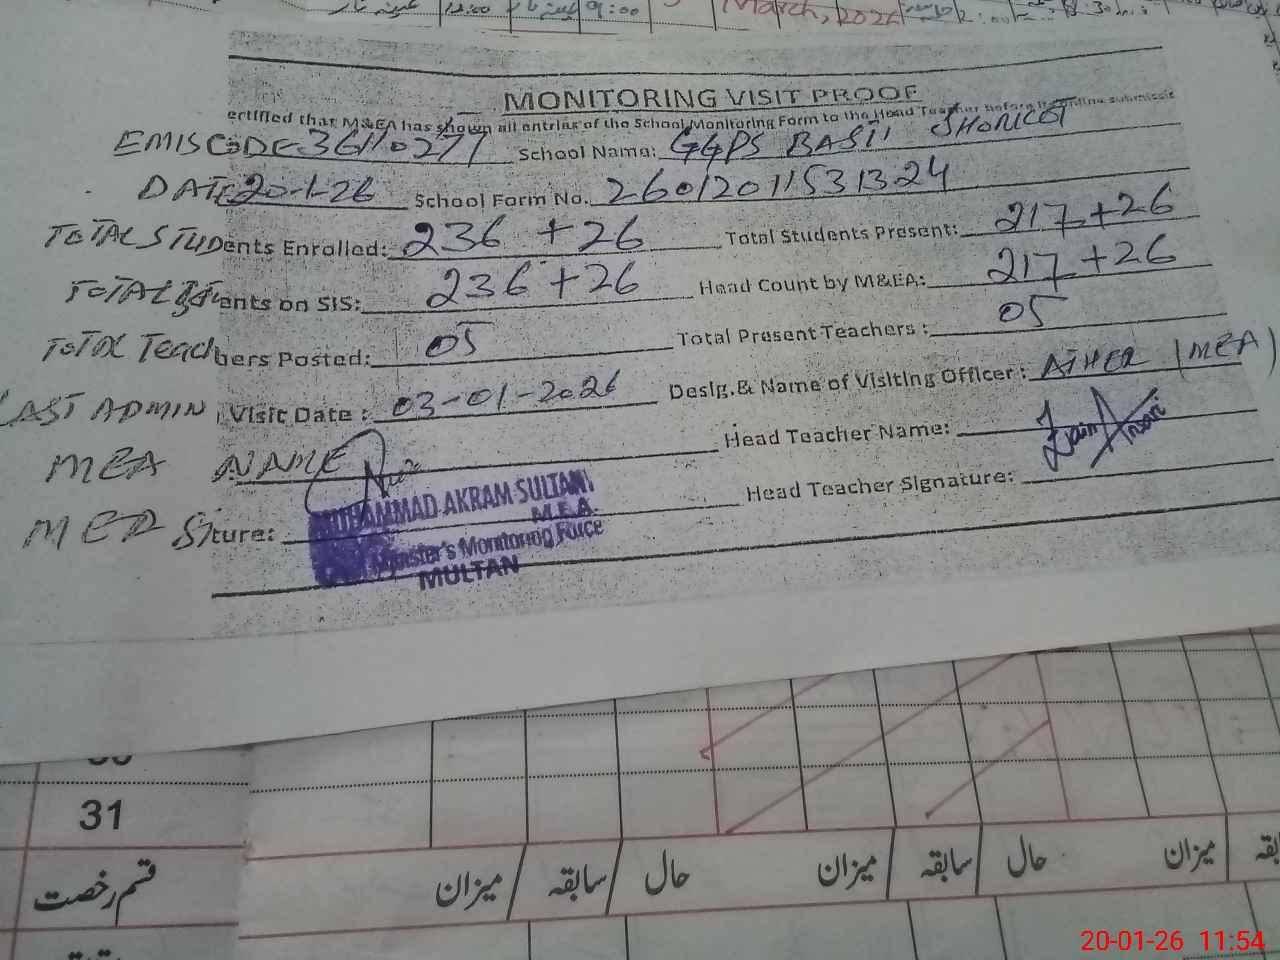 12:00 9:00 March, 2026
MONITORING VISIT PROOF
ertified that M&EA has shown all entries of the School Monitoring Form to the Head Teacher before its online submission
EMISCODE 36110277 School Name: GGPS BASTI SHORKOT
DATE 20-1-26 School Form No. 26012011531324
TOTAL STUDents Enrolled: 236 + 26 Total Students Present: 217 + 26
TOTAL Students on SIS: 236 + 26 Head Count by M&EA: 217 + 26
TOTAL Teachers Posted: 05 Total Present Teachers : 05
LAST ADMIN Visit Date : 03-01-2026 Desig.& Name of Visiting Officer : ATHER (MEA)
MEA NAME Head Teacher Name: Zain Ansari
MEA Siture: Head Teacher Signature:
MUHAMMAD AKRAM SULTANI
M.E.A.
Minister's Monitoring Force
MULTAN
31
قسم رخصت میزان سابقہ حال میزان سابقہ حال میزان سابقہ
20-01-26 11:54